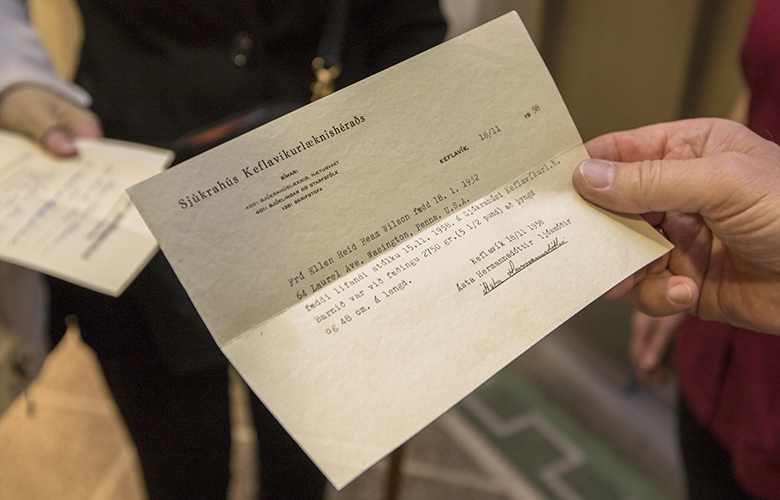 Sjúkrahús Keflavíkurlæknishéraðs
SÍMAR:
400: SJÚKRAHÚSLÆKNIR, NÆTURVAKT
401: SJÚKLINGAR OG STARFSFÓLK
1381 SKRIFSTOFA
KEFLAVÍK, 18/11 19 58
Frú Ellen Heid Reaz Wilson fædd 18. 1. 1932
64 Laurel Ave. Wasington, Penna, U.S.A.
fæddi lifandi stúlku 15.11. 1958. á Sjúkrahúsi Keflavíkurl.h.
Barnið var við fæðingu 2750 gr.(5 1/2 pund) að þyngd
og 48 cm. á lengd.
Keflavík 18/11 1958
Asta Hermannsdóttir ljósmóðir